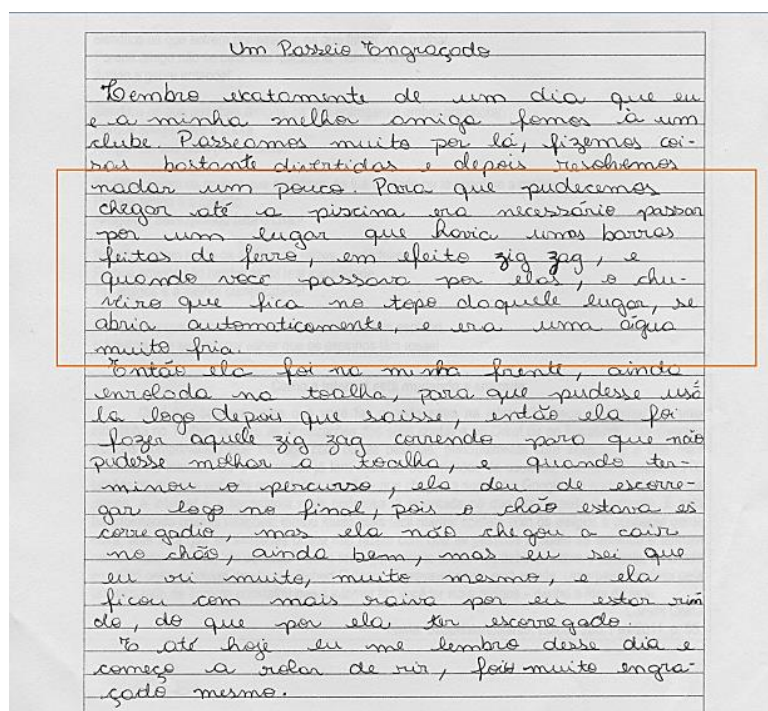 Um Passeio Engraçado
Lembro exatamente de um dia que eu
e a minha melhor amiga fomos à um
clube. Passeamos muito por lá, fizemos coi-
sas bastante divertidas e depois resolvemos
nadar um pouco. Para que pudecemos
chegar até a piscina era necessário passar
por um lugar que havia umas barras
feitas de ferro, em efeito zig zag, e
quando você passava por elas, o chu-
veiro que fica no topo daquele lugar, se
abria automaticamente, e era uma água
muito fria.
Então ela foi na minha frente, ainda
enrolada na toalha, para que pudesse usá
la logo depois que saisse, então ela foi
fazer aquele zig zag correndo para que não
pudesse molhar a toalha, e quando ter-
minou o percurso, ela deu de escorre-
gar logo no final, pois o chão estava es
corregadio, mas ela não chegou a cair
no chão, ainda bem, mas eu sei que
eu ri muito, muito mesmo, e ela
ficou com mais raiva por eu estar rin
do, do que por ela ter escorregado.
E até hoje eu me lembro desse dia e
começo a rolar de rir, foi muito engra-
çado mesmo.